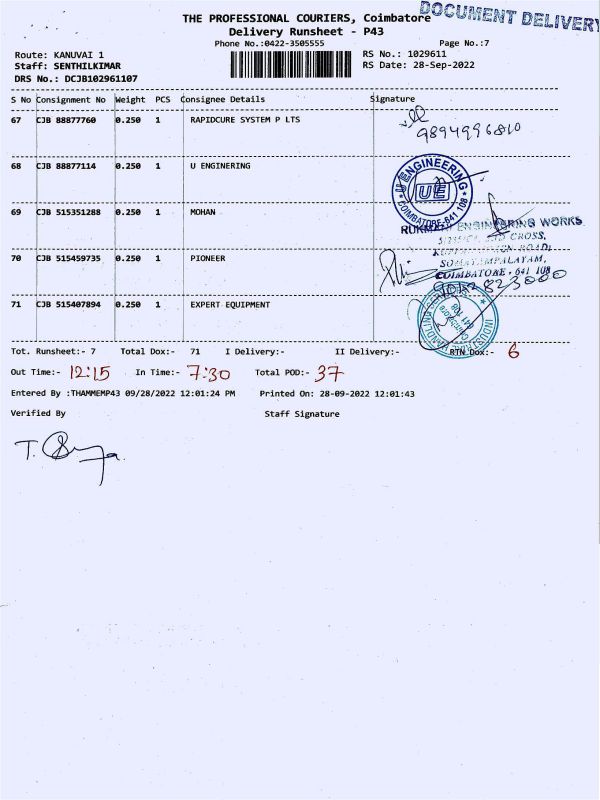 THE PROFESSIONAL COURIERS, Coimbatore
DOCUMENT DELIVERY
Delivery Runsheet - P43
Phone No.:0422-3505555
Page No.:7
Route: KANUVAI 1
RS No.: 1029611
Staff: SENTHILKIMAR
RS Date: 28-Sep-2022
DRS No.: DCJB102961107
S No Consignment No Weight PCS Consignee Details Signature
67 CJB 88877760 0.250 1 RAPIDCURE SYSTEM P LTS
9894996810
68 CJB 88877114 0.250 1 U ENGINERING
U ENGINEERING
UE
COIMBATORE-641 108
69 CJB 515351288 0.250 1 MOHAN
ENGINEERING WORKS
CROSS,
ROAD,
70 CJB 515459735 0.250 1 PIONEER
SOMAYAMPALAYAM,
COIMBATORE - 641 108
71 CJB 515407894 0.250 1 EXPERT EQUIPMENT
Coimbatore
641 108
Tot. Runsheet:- 7 Total Dox:- 71 I Delivery:- II Delivery:- RTN Dox:- 6
Out Time:- 12:15 In Time:- 7:30 Total POD:- 37
Entered By :THAMMEMP43 09/28/2022 12:01:24 PM Printed On: 28-09-2022 12:01:43
Verified By Staff Signature